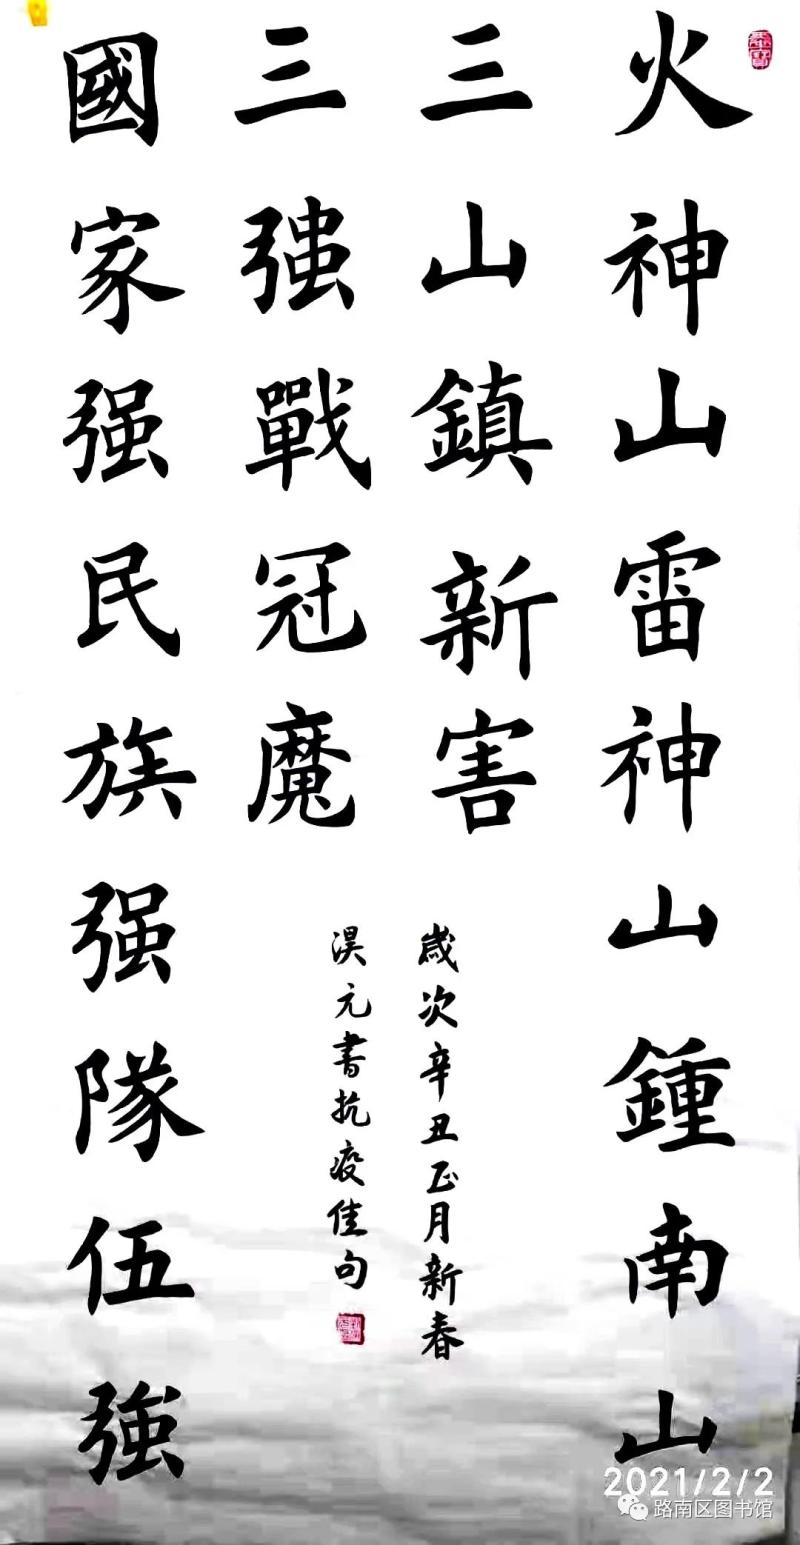 火神山雷神山鍾南山
三山鎮新害
國家强民族强隊伍強
三强戰冠魔
歲次辛丑正月新春
淏元書抗疫佳句
2021/2/2
路南区图书馆